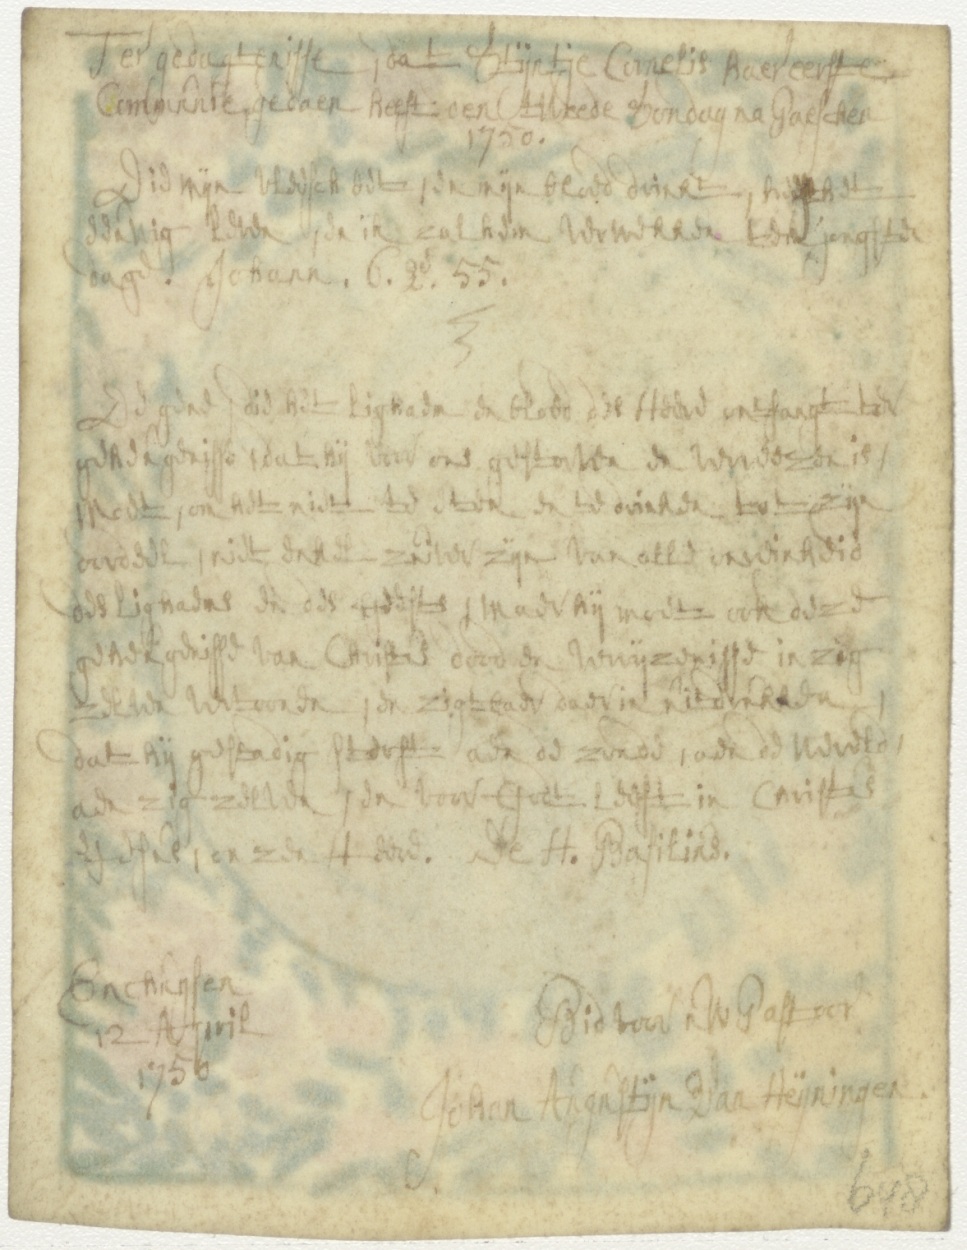 Ter gedagtenisse, dat Stijntje Cornelis haer eerste
Communie gedaen heeft den tweede Sondag na Paeschen
1750.
Die mijn vleesch eet, en mijn bloed drinkt, heeft het
eeuwig leven, en ik zal hem verwekken ten jongsten
dage. Johann. 6. v. 55.
De gene, die het Lighaem en bloed des Heere ontfangt ter
geheugenisse, dat hij voor ons gestorven en verrezen is,
moet, om het niet te eten en te drinken tot zijn
oordeel, niet enkel zuiver zijn van alle onreinheid
des Lighaems en des Geests, maer hij moet ook deze
gehengenisse van Christus door de verrijzenisse in zig
zelve vertoonen, en zigtbaer daer in uitdrukken,
dat hij gestadig sterft aen de zonde, aen de wereld,
aen zig zelven, en voor Godt leeft in Christus
Jesus, onzen Heere. De H. Basilius.
Enchuysen
12 April
1750
Bid voor uw Pastoor
Johan Augustijn Van Heijningen.
648